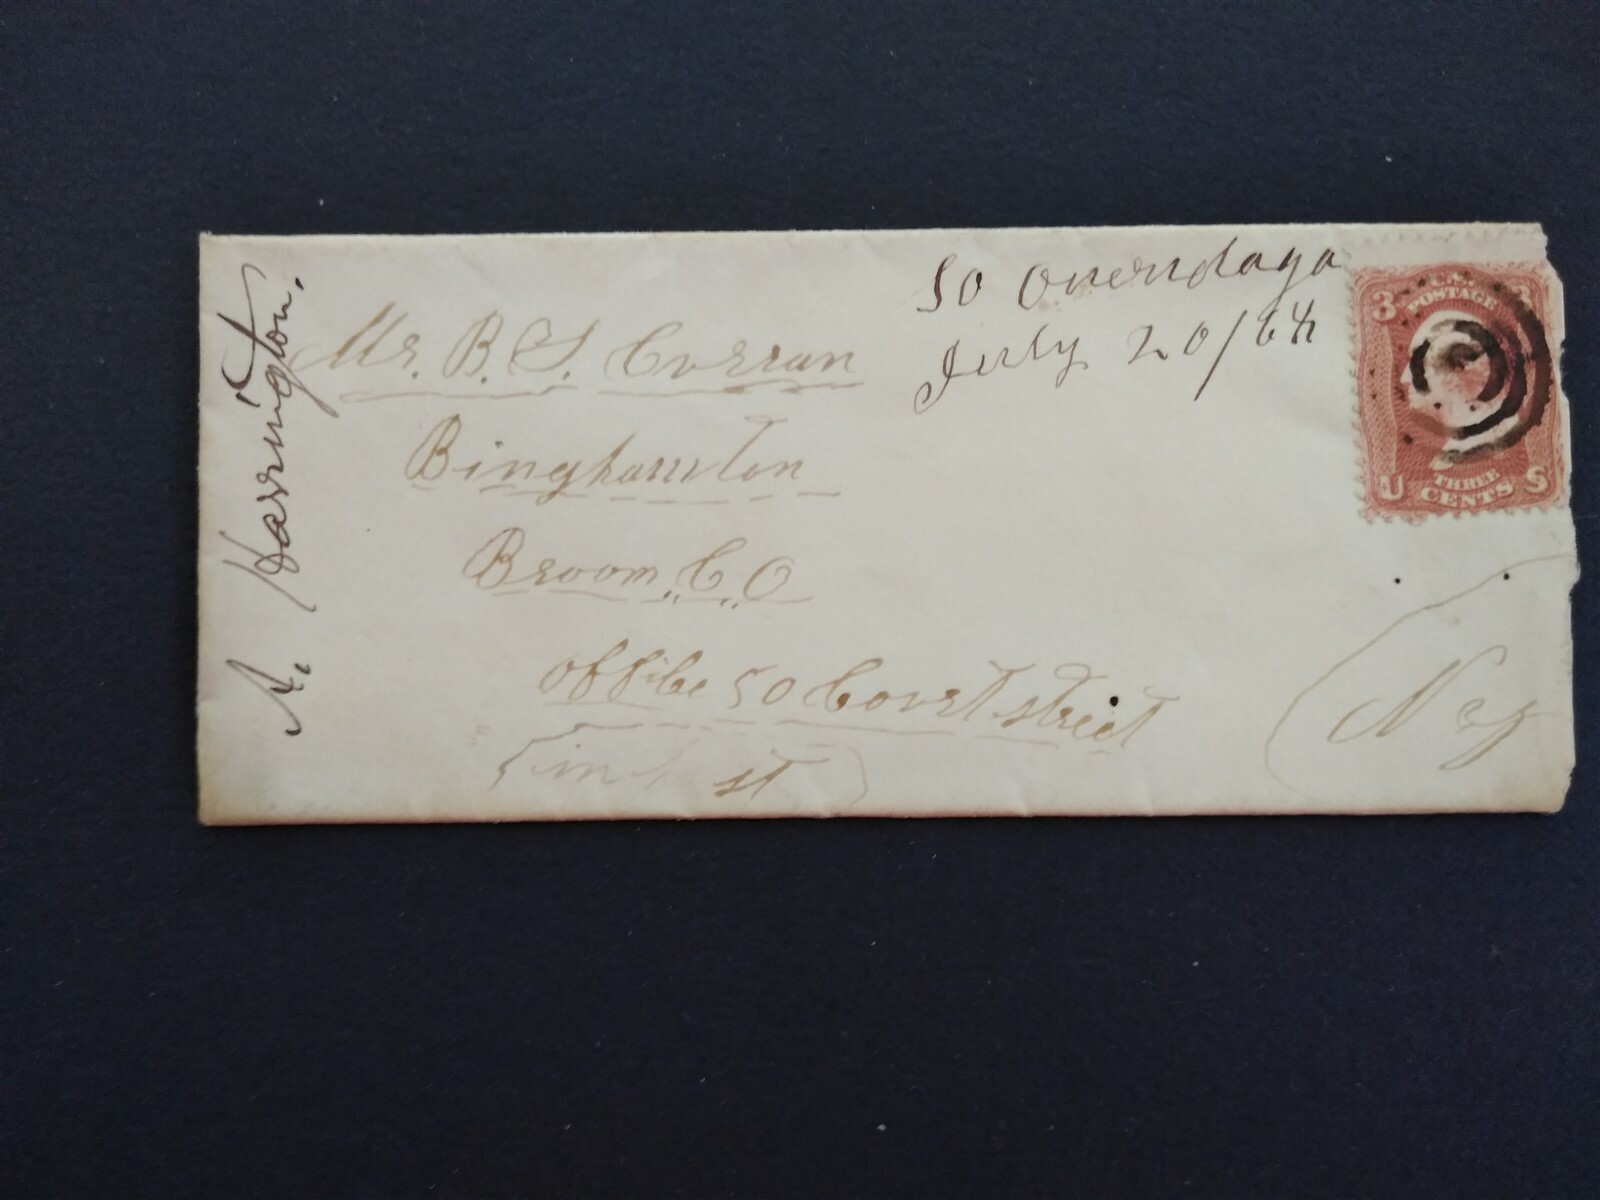 So Onondaga
July 20/64
Mr. B. S. Curran
Binghamton
Broom, C, O
office 50 Court street
(in st)
N.Y
A. Harrington.
3 U.S. 3
POSTAGE
U THREE S
CENTS